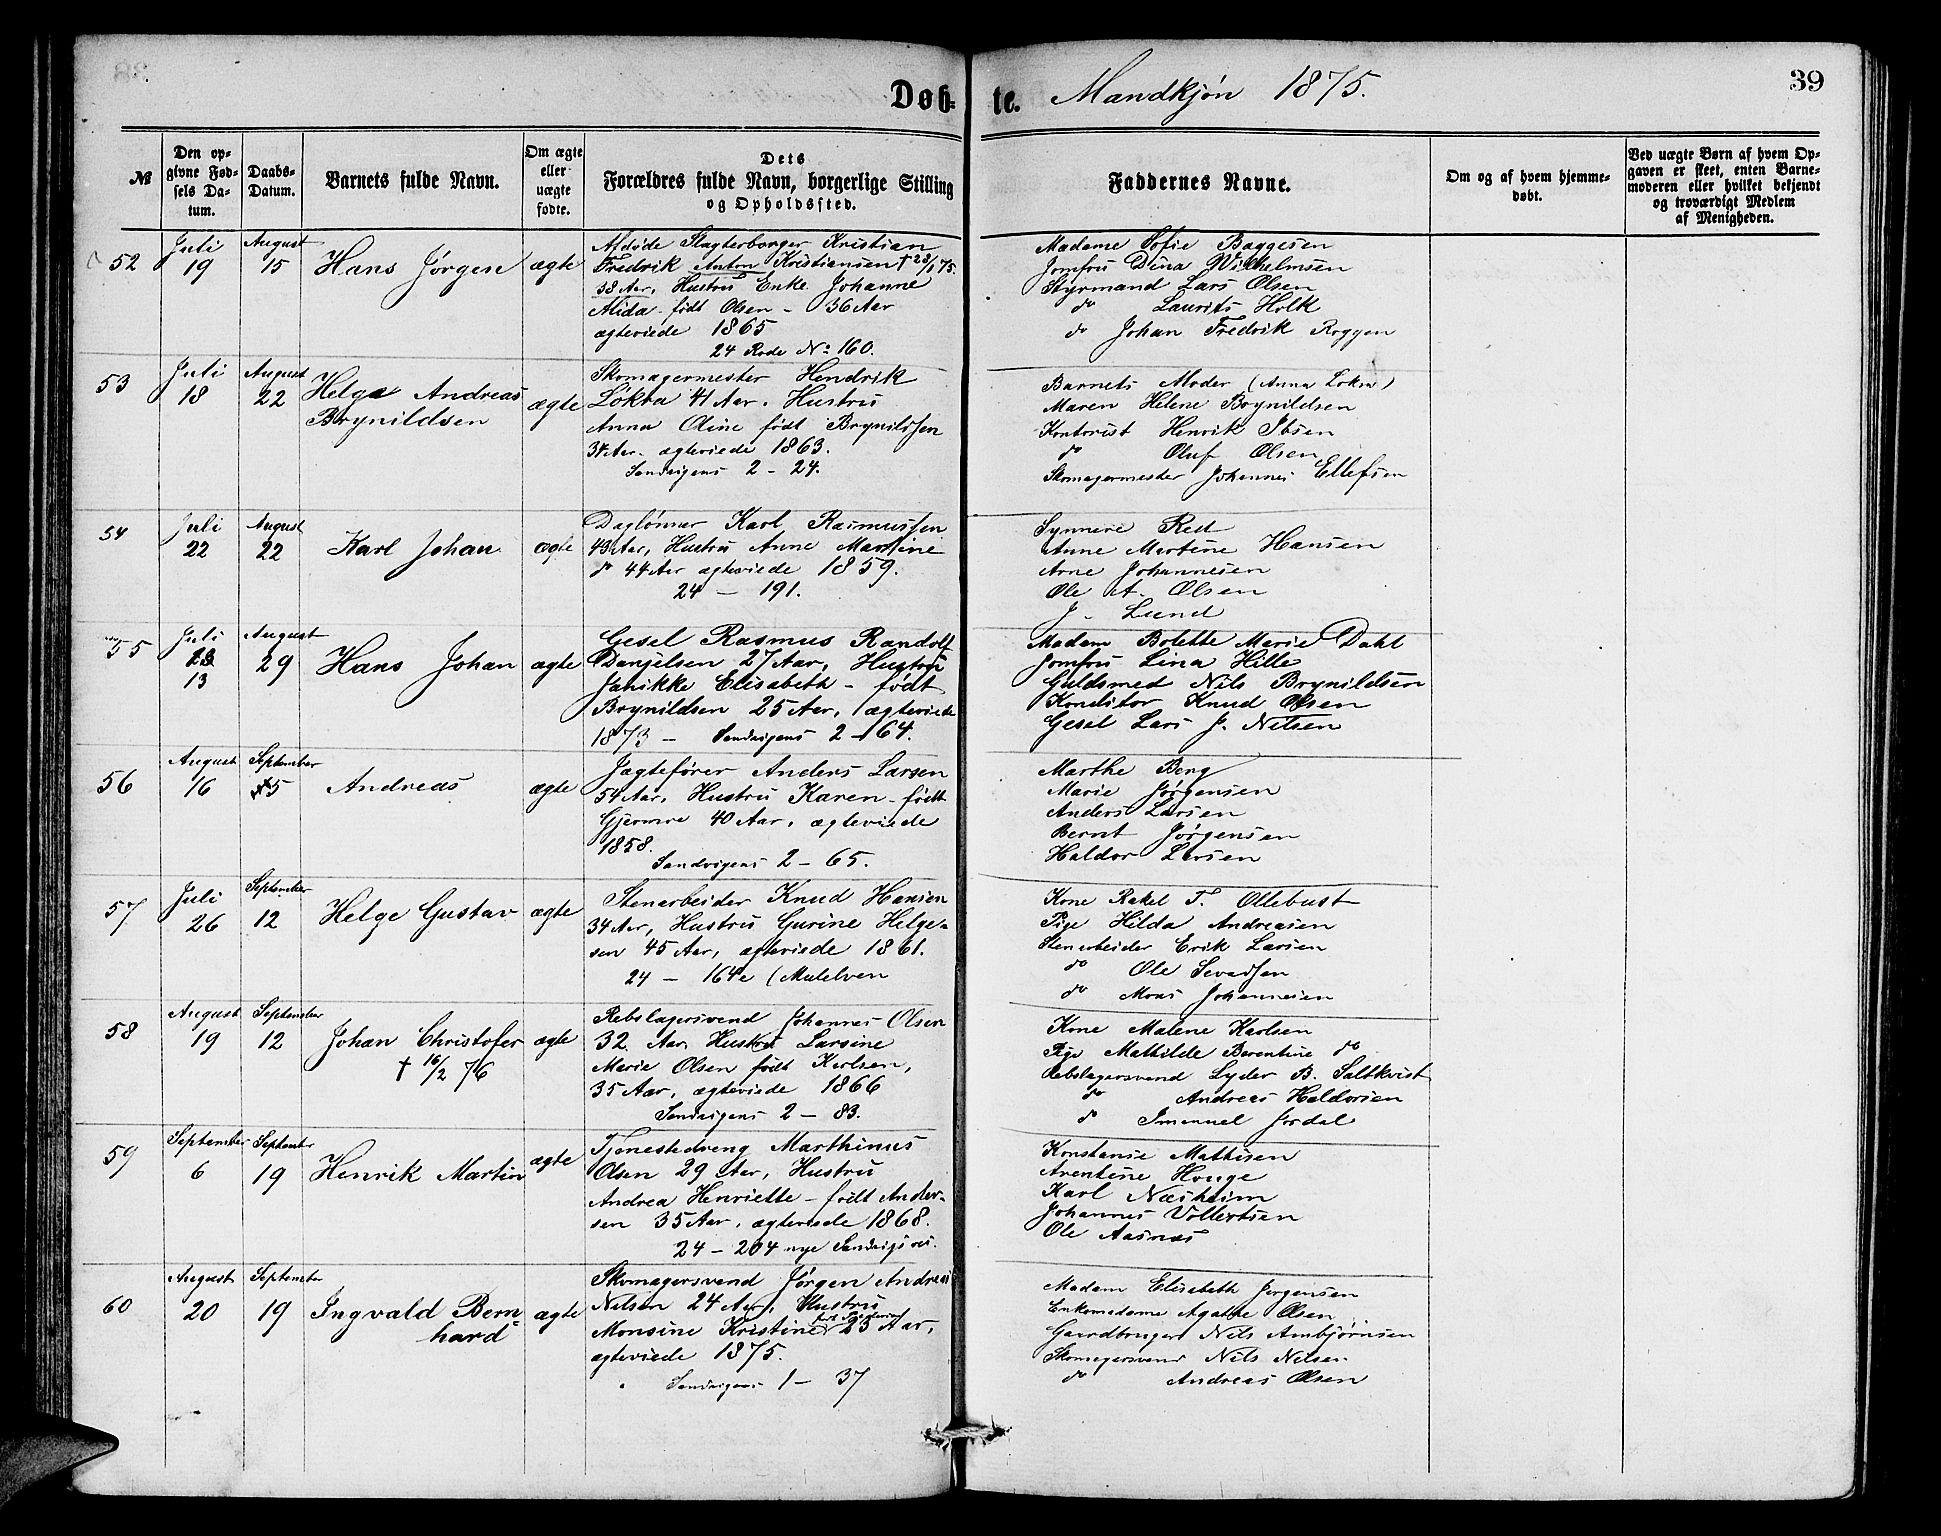 Døb-te. Mandkjøn 1875.
39
№
Den op-
givne Fød-
sels Da-
tum.
Daabs-
Datum.
Barnets fulde Navn.
Om ægte
eller
uægte
fødte.
Dets
Forældres fulde Navn, borgerlige Stilling
og Opholdssted.
Faddernes Navne.
Om og af hvem hjemme-
døbt.
Ved uægte Børn af hvem Op-
gaven er skeet, enten Barne-
moderen eller hvilket bekjendt
og troværdigt Medlem
af Menigheden.
52
Juli
19
August
15
Hans Jørgen
ægte
Afdøde Slagterborger Kristian
Fredrik Anton Kristiansen † 23/1 75.
38 Aar, Hustru Enke Johanne
Alida født Olsen - 36 Aar
ægteviede 1865
24 Rode No 160.
Madame Sofie Baggesen
Jomfru Dina Wilhelmsen
Styrmand Lars Olsen
do Laurits Holk
do Johan Fredrik Roggen
53
Juli
18
August
22
Helge Andreas
Brynildsen
ægte
Skomagermester Hendrik
Lokra 41 Aar. Hustru
Anna Oline født Brynilssen
34 Aar. ægteviede 1863.
Sandvigens 2 - 24.
Barnets Moder (Anna Lokra)
Maren Helene Brynildsen
Kontorist Henrik Ibsen
do Oluf Olsen
Skomagermester Johannes Ellefsen
54
Juli
22
August
22
Karl Johan
ægte
Daglønner Karl Rasmussen
43 Aar, Hustru Anne Martine
do 44 Aar ægteviede 1859.
24 - 191.
Synneve Red
Anne Martine Hansen
Arne Johannesen
Ole A. Olsen
J. Lund
55
Juli
13
August
29
Hans Johan
ægte
Gesel Rasmus Randolf
Danjelsen 27 Aar, Hustru
Janikke Elisabeth - født
Brynildsen 25 Aar, ægteviede
1873 - Sandvigens 2 - 64.
Madam Bolette Marie Dahl
Jomfru Lina Hille
Guldsmed Nils Brynildsen
Konditor Knud Olsen
Gesel Lars J. Nilsen
56
August
16
September
5
Andreas
ægte
Jagtefører Anders Larsen
54 Aar. Hustru Karen - født
Gjermre 40 Aar, ægteviede
1858.
Sandvigens 2 - 65.
Marthe Berg
Marie Jørgensen
Anders Larsen
Bernt Jørgensen
Haldor Larsen
57
Juli
26
September
12
Helge Gustav
ægte
Stenarbeider Knud Hansen
34 Aar, Hustru Gurine Helge-
sen 45 Aar, ægteviede 1861.
24 - 164e (Mulelven
Kone Rakel T. Ollebust
Pige Hilda Andreasen
Stenarbeider Erik Larsen
do Ole Sevadsen
do Mons Johannesen
58
August
19
September
12
Johan Christofer
† 16/2 76
ægte
Rebslagersvend Johannes Olsen
32 Aar Hustru Larsine
Marie Olsen født Karlsen,
35 Aar, ægteviede 1866
Sandvigens 2 - 83.
Kone Malene Karlsen
Pige Mathilde Berentine do
Rebslagersvend Lyder B. Saltkvist
do Andreas Haldorsen
do Imanuel Jordal
59
September
6
September
19
Henrik Martin
ægte
Tjenestedreng Marthinus
Olsen 29 Aar, Hustru
Andrea Henriette - født Ander-
sen 35 Aar. ægteviede 1868.
24 - 204 nye Sandvigsvei.
Konstanse Mathisen
Arentine Houge
Karl Næsheim
Johannes Vollertsen
Ole Aasnæs
60
August
20
September
19
Ingvald Bern-
hard
ægte
Skomagersvend Jørgen Andreas
Nilsen 24 Aar, Hustru
Monsine Kristine født 25 Aar,
ægteviede 1875.
Sandvigens 1 - 37
Madam Elisabeth Jørgensen
Enkemadame Agathe Olsen
Gaardbruger Nils Ambjørnsen
Skomagersvend Nils Nilsen
do Andreas Olsen